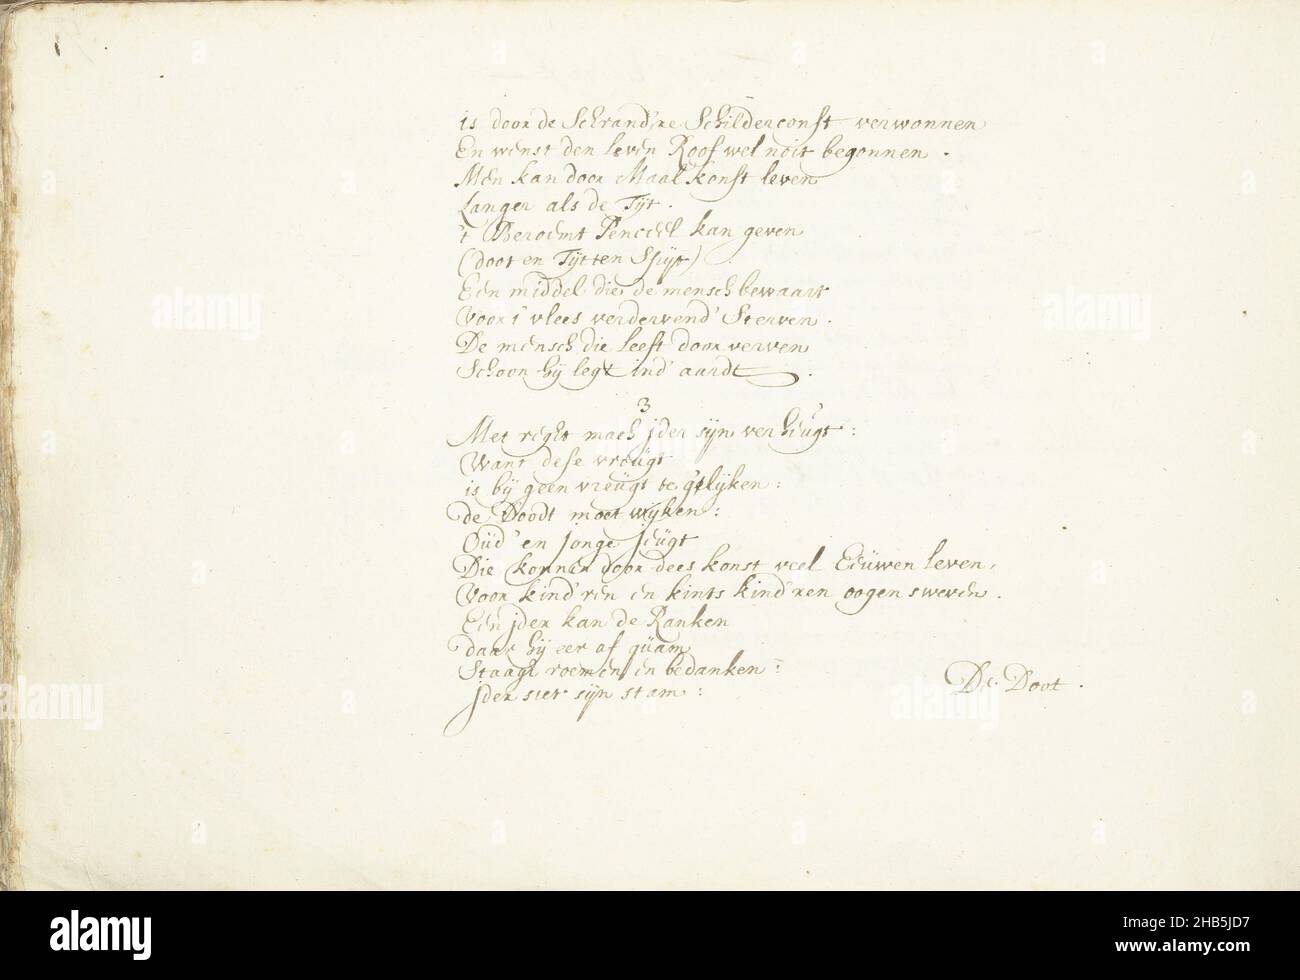 is door de Schrand're Schilderconst verwonnen
En wenst den leven Roof wel noit begonnen .
Men kan door Maal konst leven
Langer als de Tyt .
't Beroemt Penceel kan geven
(doot en Tyt ten Spyt)
Een middel die de mensch bewaart
Voor 't vlees verdervend' Sterven .
De mensch die leeft door verven
Schoon hy legt ind' aardt .
3
Met reght mach jder syn verheugt :
Want dese vreugt
is by geen vreugt te gelyken :
de Doodt moet wyken :
Oud' en jonge jeugt
Die konnen door dees konst veel Eeuwen leven ,
Voor kind'ren en kints kind'ren oogen sweven .
Een jder kan de Ranken
daar hy eer af quam
Staagh roemen en bedanken :
jder siet syn stam :
De Doot .
alamy
Image ID: 2HB5JD7
www.alamy.com